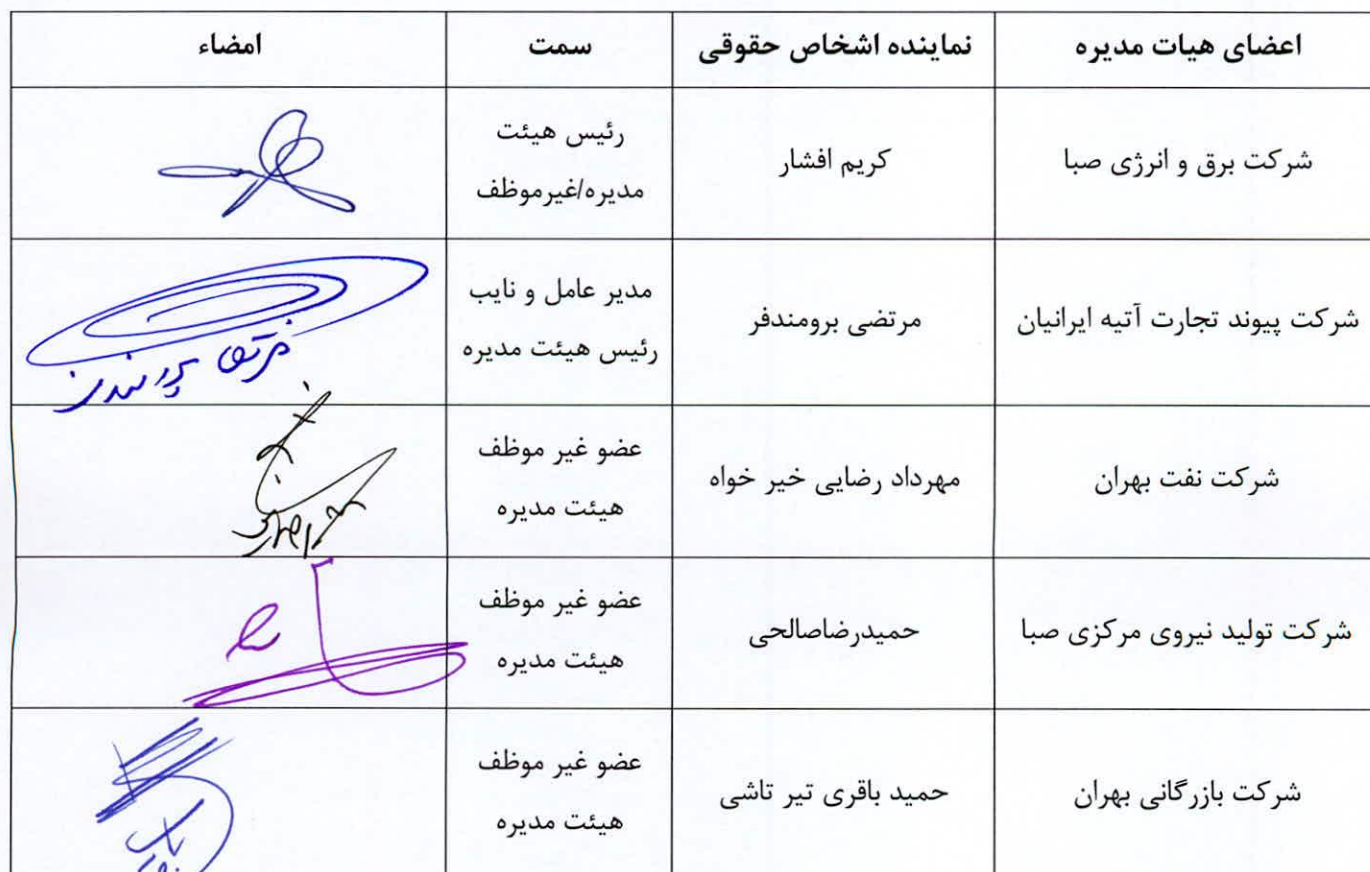 اعضای هیات مدیره	نماینده اشخاص حقوقی	سمت	امضاء
شرکت برق و انرژی صبا	کریم افشار	رئیس هیئت
مدیره/غیرموظف
شرکت پیوند تجارت آتیه ایرانیان	مرتضی برومندفر	مدیر عامل و نایب
رئیس هیئت مدیره
شرکت نفت بهران	مهرداد رضایی خیر خواه	عضو غیر موظف
هیئت مدیره
شرکت تولید نیروی مرکزی صبا	حمیدرضاصالحی	عضو غیر موظف
هیئت مدیره
شرکت بازرگانی بهران	حمید باقری تیر تاشی	عضو غیر موظف
هیئت مدیره